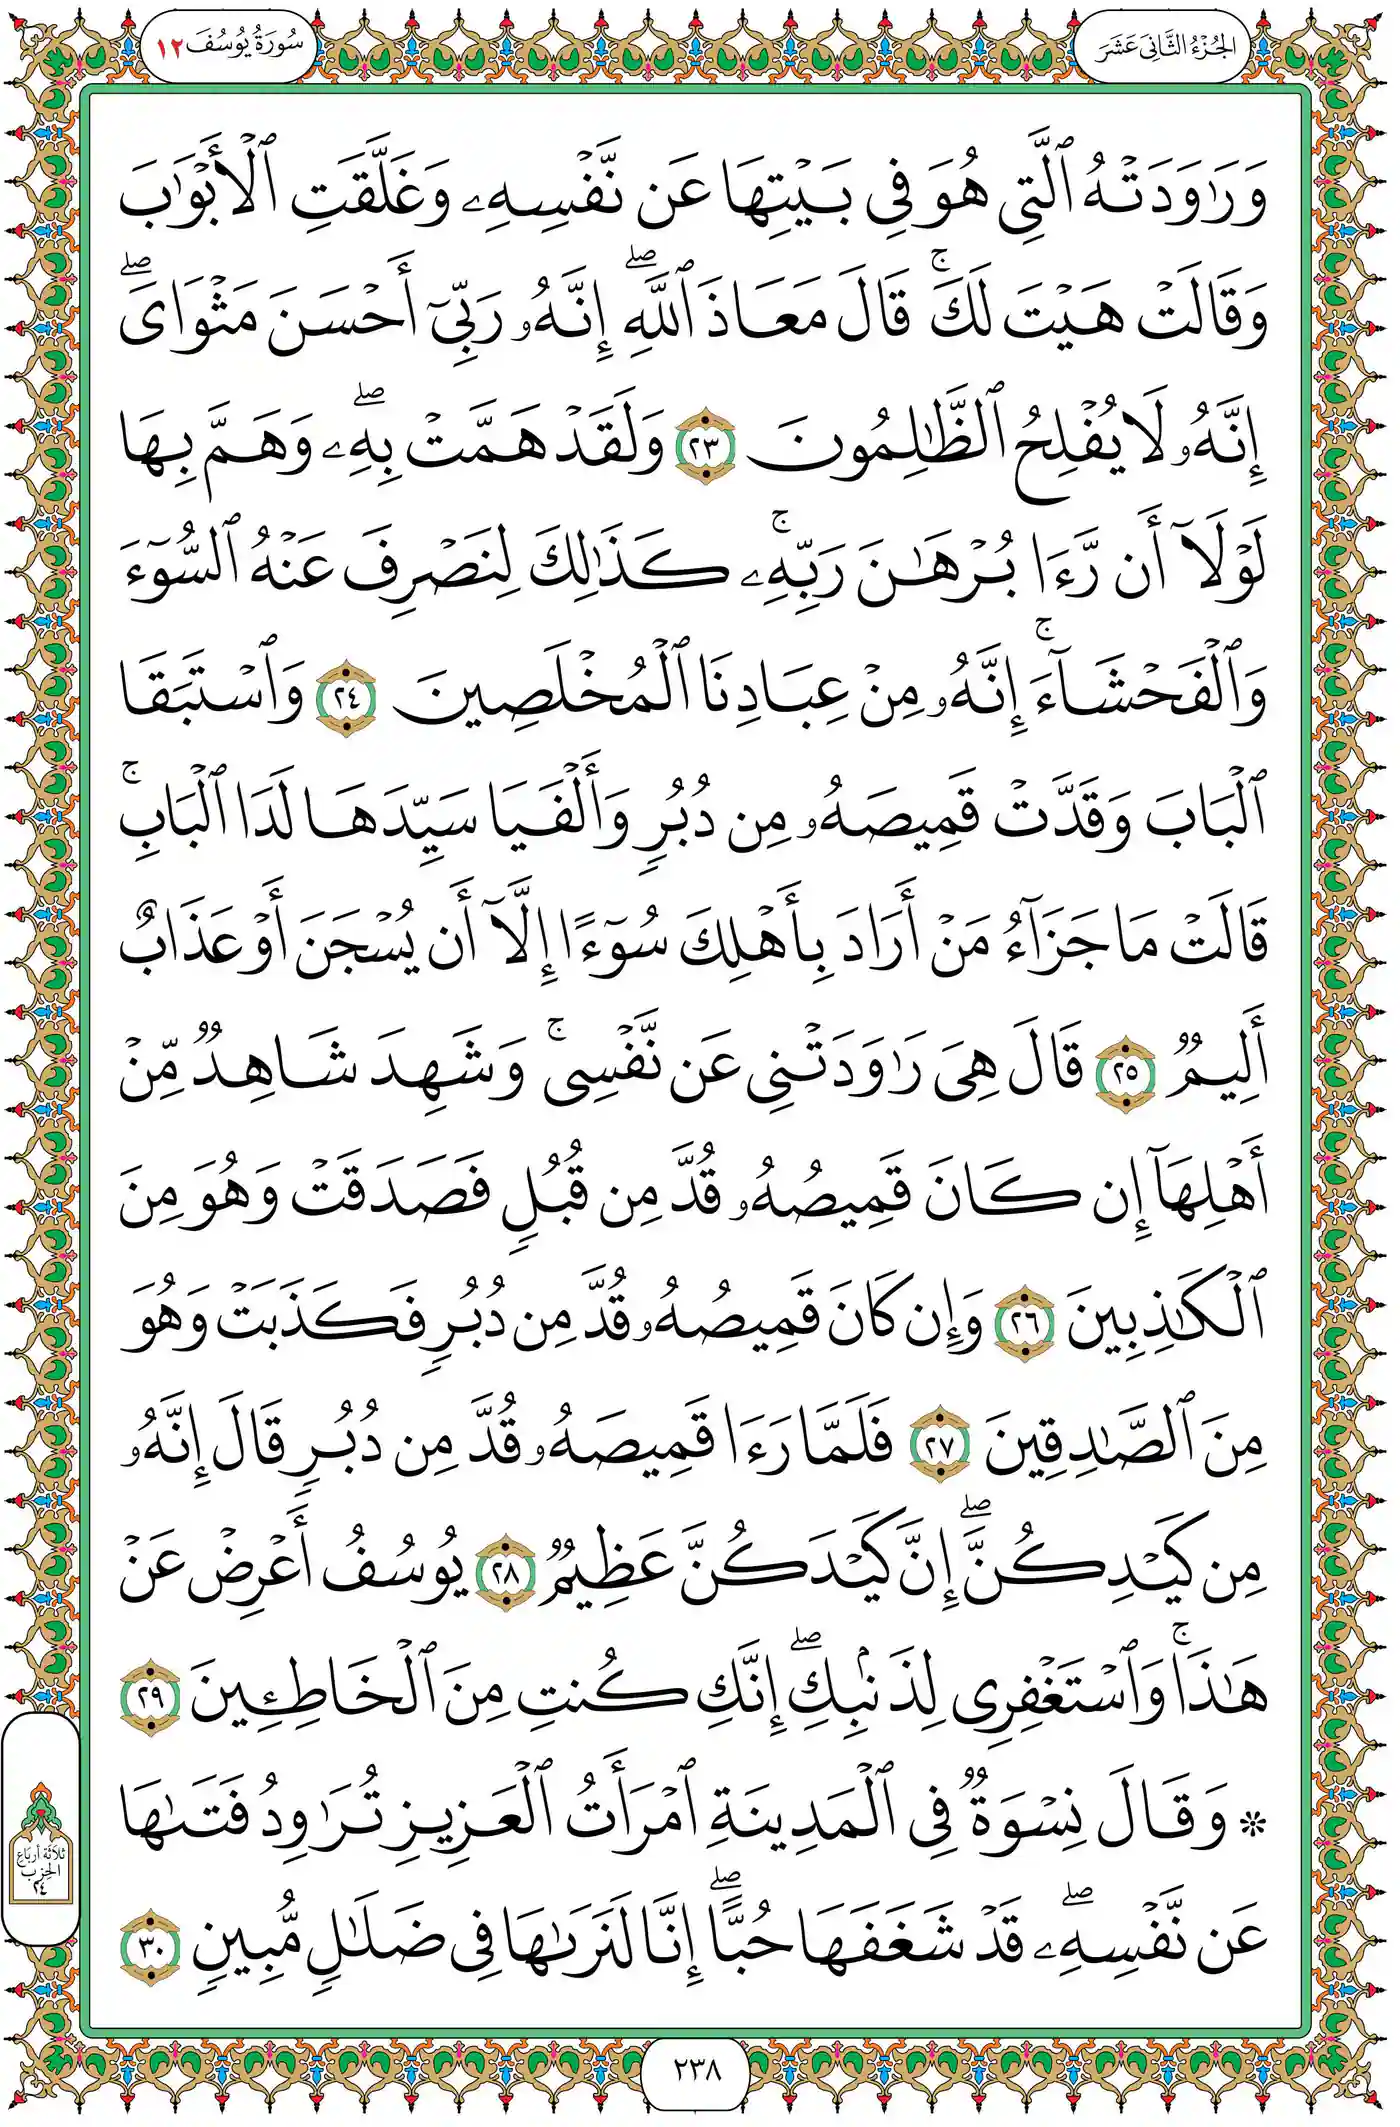 الجُزْءُ الثَّانِي عَشَرَ
سُورَةُ يُوسُفَ ١٢
وَرَٰوَدَتْهُ ٱلَّتِى هُوَ فِى بَيْتِهَا عَن نَّفْسِهِۦ وَغَلَّقَتِ ٱلْأَبْوَٰبَ
وَقَالَتْ هَيْتَ لَكَ ۚ قَالَ مَعَاذَ ٱللَّهِ ۖ إِنَّهُۥ رَبِّىٓ أَحْسَنَ مَثْوَاىَ ۖ
إِنَّهُۥ لَا يُفْلِحُ ٱلظَّٰلِمُونَ ٢٣ وَلَقَدْ هَمَّتْ بِهِۦ ۖ وَهَمَّ بِهَا
لَوْلَآ أَن رَّءَا بُرْهَٰنَ رَبِّهِۦ ۚ كَذَٰلِكَ لِنَصْرِفَ عَنْهُ ٱلسُّوٓءَ
وَٱلْفَحْشَآءَ ۚ إِنَّهُۥ مِنْ عِبَادِنَا ٱلْمُخْلَصِينَ ٢٤ وَٱسْتَبَقَا
ٱلْبَابَ وَقَدَّتْ قَمِيصَهُۥ مِن دُبُرٍ وَأَلْفَيَا سَيِّدَهَا لَدَا ٱلْبَابِ ۚ
قَالَتْ مَا جَزَآءُ مَنْ أَرَادَ بِأَهْلِكَ سُوٓءًا إِلَّآ أَن يُسْجَنَ أَوْ عَذَابٌ
أَلِيمٌ ٢٥ قَالَ هِىَ رَٰوَدَتْنِى عَن نَّفْسِى ۚ وَشَهِدَ شَاهِدٌ مِّنْ
أَهْلِهَآ إِن كَانَ قَمِيصُهُۥ قُدَّ مِن قُبُلٍ فَصَدَقَتْ وَهُوَ مِنَ
ٱلْكَٰذِبِينَ ٢٦ وَإِن كَانَ قَمِيصُهُۥ قُدَّ مِن دُبُرٍ فَكَذَبَتْ وَهُوَ
مِنَ ٱلصَّٰدِقِينَ ٢٧ فَلَمَّا رَءَا قَمِيصَهُۥ قُدَّ مِن دُبُرٍ قَالَ إِنَّهُۥ
مِن كَيْدِكُنَّ ۖ إِنَّ كَيْدَكُنَّ عَظِيمٌ ٢٨ يُوسُفُ أَعْرِضْ عَنْ
هَٰذَا ۚ وَٱسْتَغْفِرِى لِذَنۢبِكِ ۖ إِنَّكِ كُنتِ مِنَ ٱلْخَاطِـِٔينَ ٢٩
۞ وَقَالَ نِسْوَةٌ فِى ٱلْمَدِينَةِ ٱمْرَأَتُ ٱلْعَزِيزِ تُرَٰوِدُ فَتَىٰهَا
عَن نَّفْسِهِۦ ۖ قَدْ شَغَفَهَا حُبًّا ۖ إِنَّا لَنَرَىٰهَا فِى ضَلَٰلٍ مُّبِينٍ ٣٠
ثلاثة أرباع
الحزب
٢٤
٢٣٨